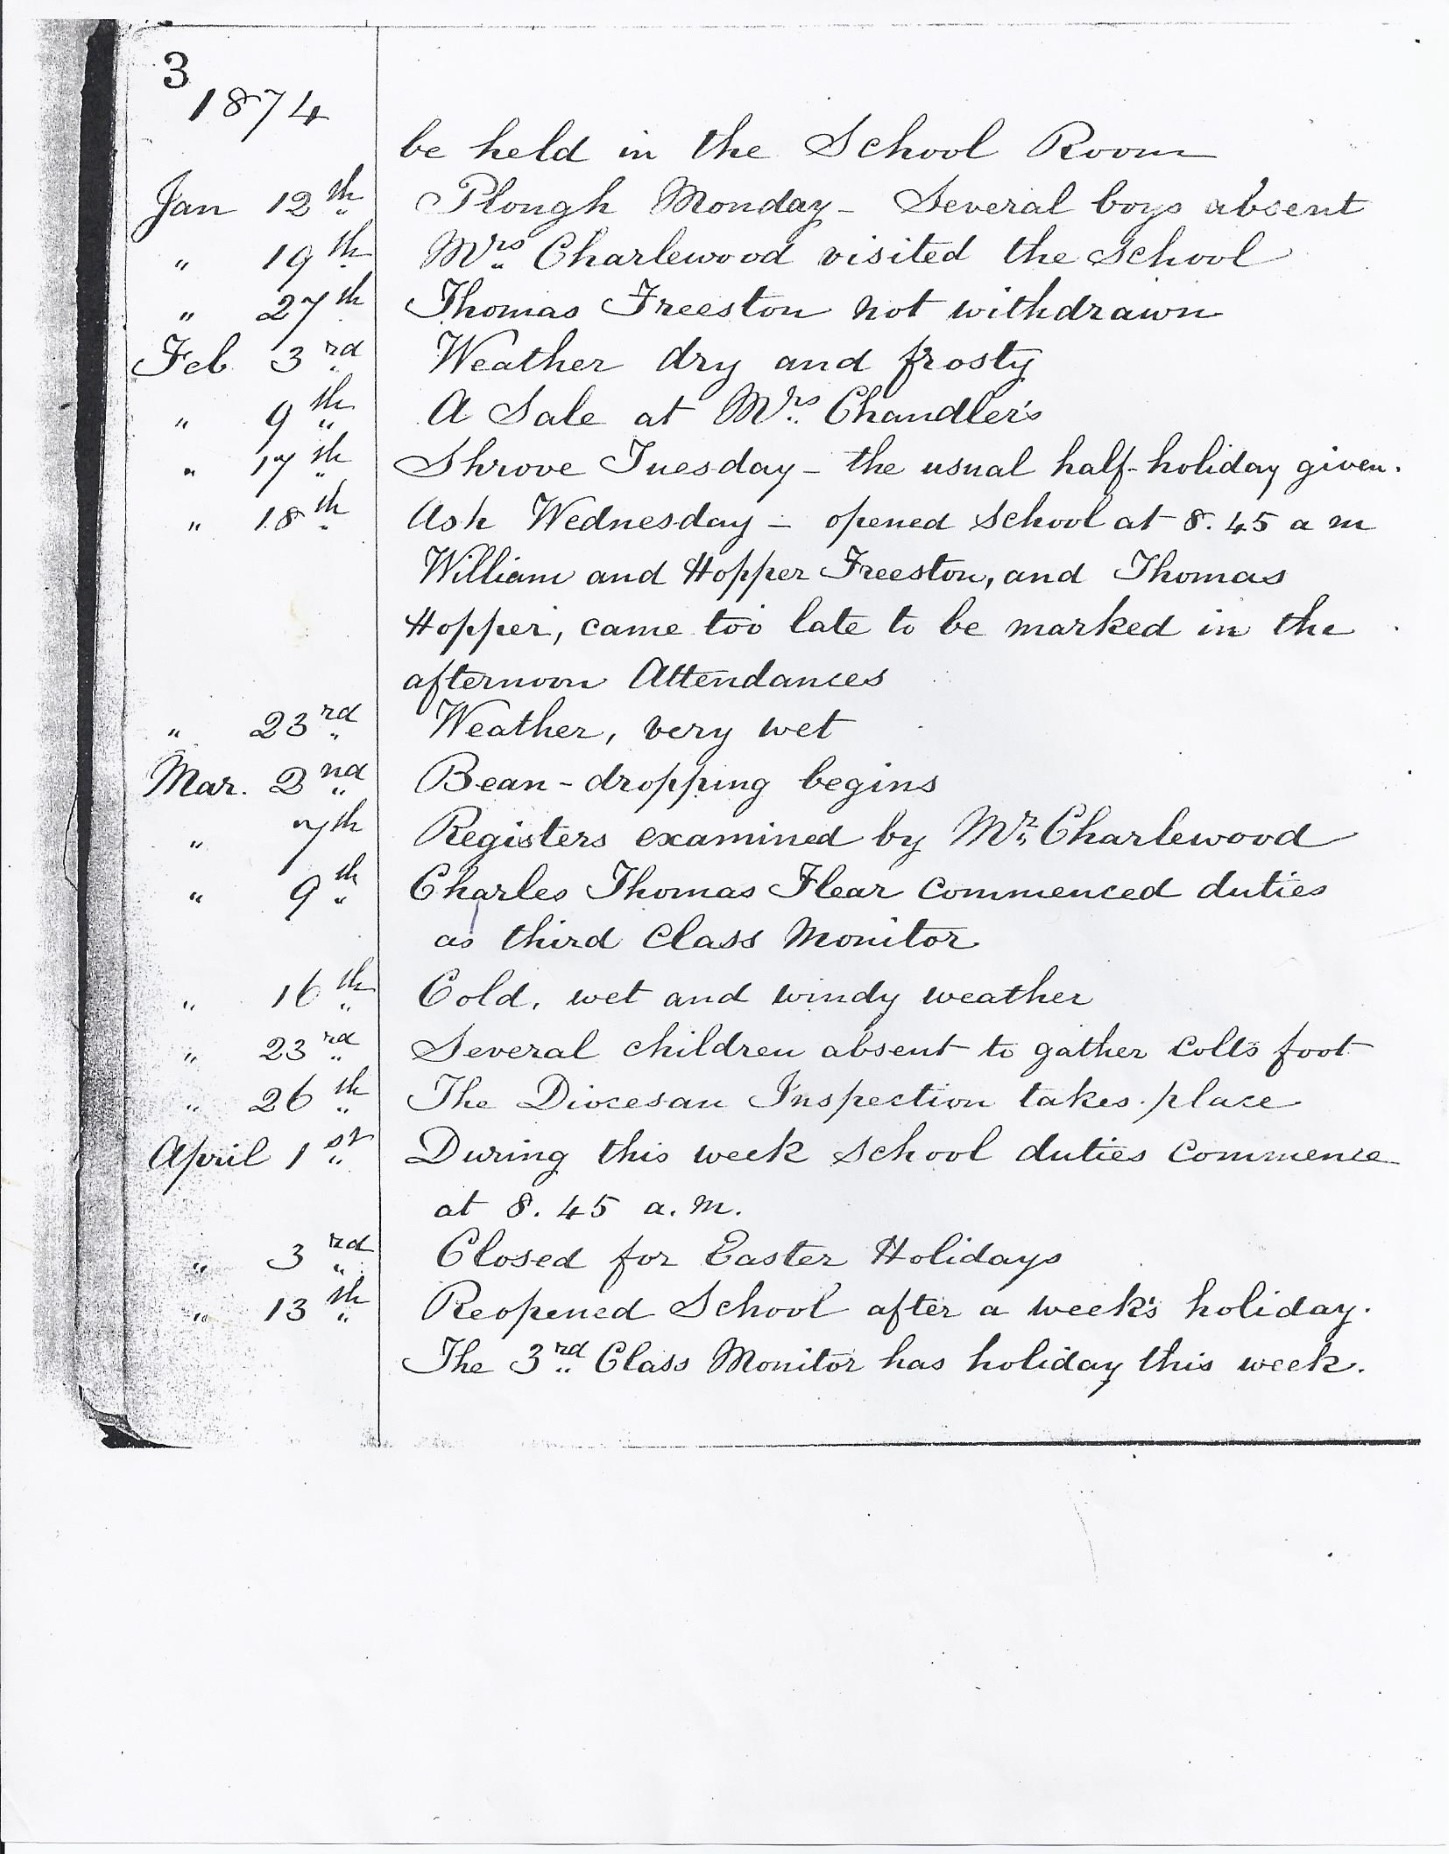 3
1874
be held in the School Room
Jan 12th Plough Monday - Several boys absent
" 19th Mrs Charlewood visited the School
" 27th Thomas Freeston not withdrawn
Feb 3rd Weather dry and frosty
" 9th A Sale at Mrs Chandler's
" 17th Shrove Tuesday - the usual half-holiday given.
" 18th Ash Wednesday - opened school at 8.45 a m
William and Hopper Freeston, and Thomas
Hopper, came too late to be marked in the
afternoon Attendances
" 23rd Weather, very wet
Mar. 2nd Bean-dropping begins
" 7th Registers examined by Mr Charlewood
" 9th Charles Thomas Flear commenced duties
as third class Monitor
" 16th Cold, wet and windy weather
" 23rd Several children absent to gather colts foot
" 26th The Diocesan Inspection takes place
April 1st During this week school duties commence
at 8.45 a.m.
" 3rd Closed for Easter Holidays
" 13th Reopened School after a week's holiday.
The 3rd Class Monitor has holiday this week.